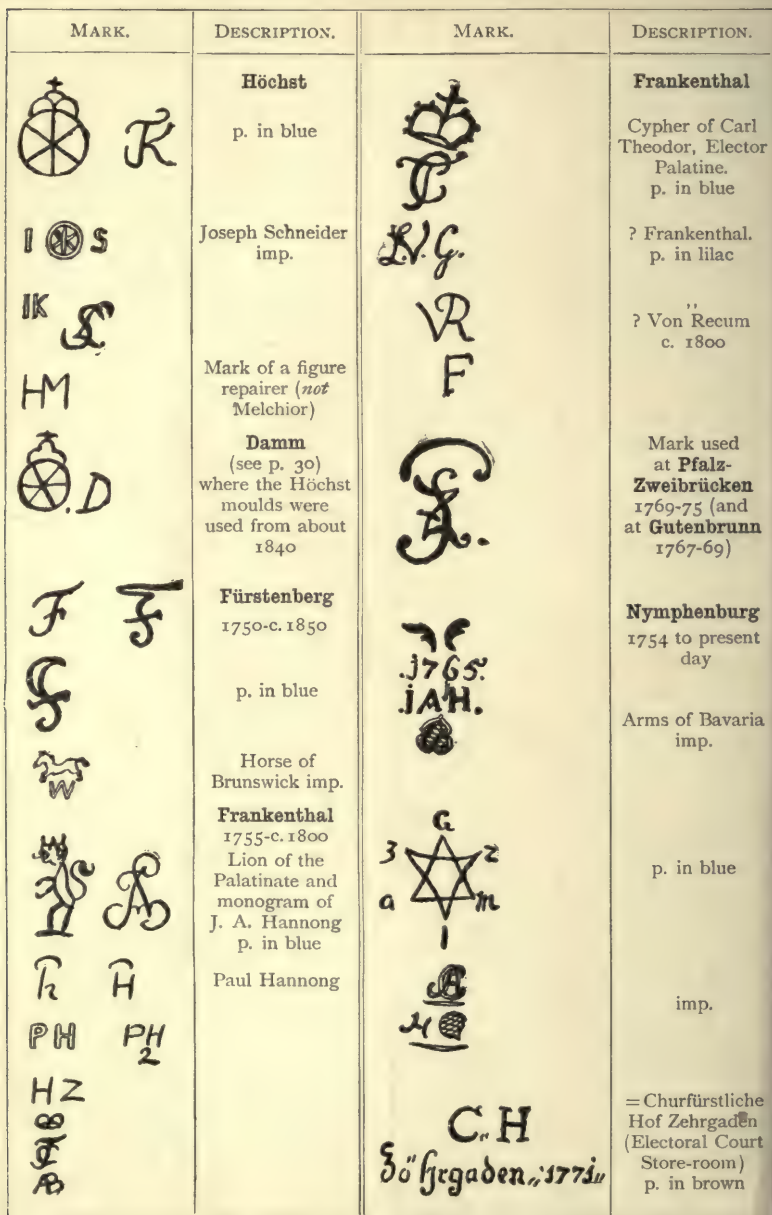 MARK.
DESCRIPTION.
Höchst
K
p. in blue
I S
Joseph Schneider
imp.
IK
HM
Mark of a figure
repairer (not
Melchior)
.D
Damm
(see p. 30)
where the Höchst
moulds were
used from about
1840
F F
Fürstenberg
1750-c. 1850
F
p. in blue
W
Horse of
Brunswick imp.
Frankenthal
1755-c. 1800
Lion of the
Palatinate and
monogram of
J. A. Hannong
p. in blue
h H
Paul Hannong
PH PH
2
HZ
MARK.
DESCRIPTION.
Frankenthal
CT
Cypher of Carl
Theodor, Elector
Palatine.
p. in blue
G.
? Frankenthal.
p. in lilac
VR
F
? Von Recum
c. 1800
Mark used
at Pfalz-
Zweibrücken
1769-75 (and
at Gutenbrunn
1767-69)
Nymphenburg
1754 to present
day
.j765.
.jAH.
Arms of Bavaria
imp.
G
3 z
a m
l
p. in blue
A
H
imp.
C,, H
Zöhrgaden,,:1771,,
=Churfürstliche
Hof Zehrgaden
(Electoral Court
Store-room)
p. in brown